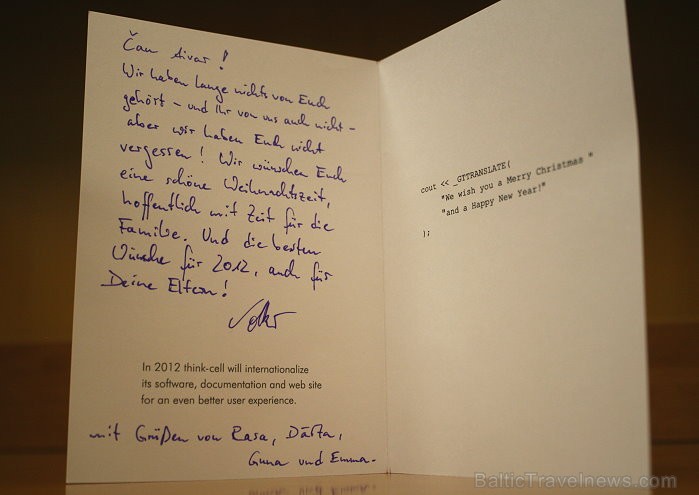 Čau Aivar!
Wir haben lange nichts von Euch
gehört – und Ihr von uns auch nicht –
aber wir haben Euch nicht
vergessen! Wir wünschen Euch
eine schöne Weihnachtszeit,
hoffentlich mit Zeit für die
Familie. Und die besten
Wünsche für 2012, auch für
Deine Eltern!
In 2012 think-cell will internationalize
its software, documentation and web site
for an even better user experience.
mit Grüßen von Rasa, Dārta,
und Emma.
cout << _GTTRANSLATE(
"We wish you a Merry Christmas "
"and a Happy New Year!"
);
BalticTravelnews.com